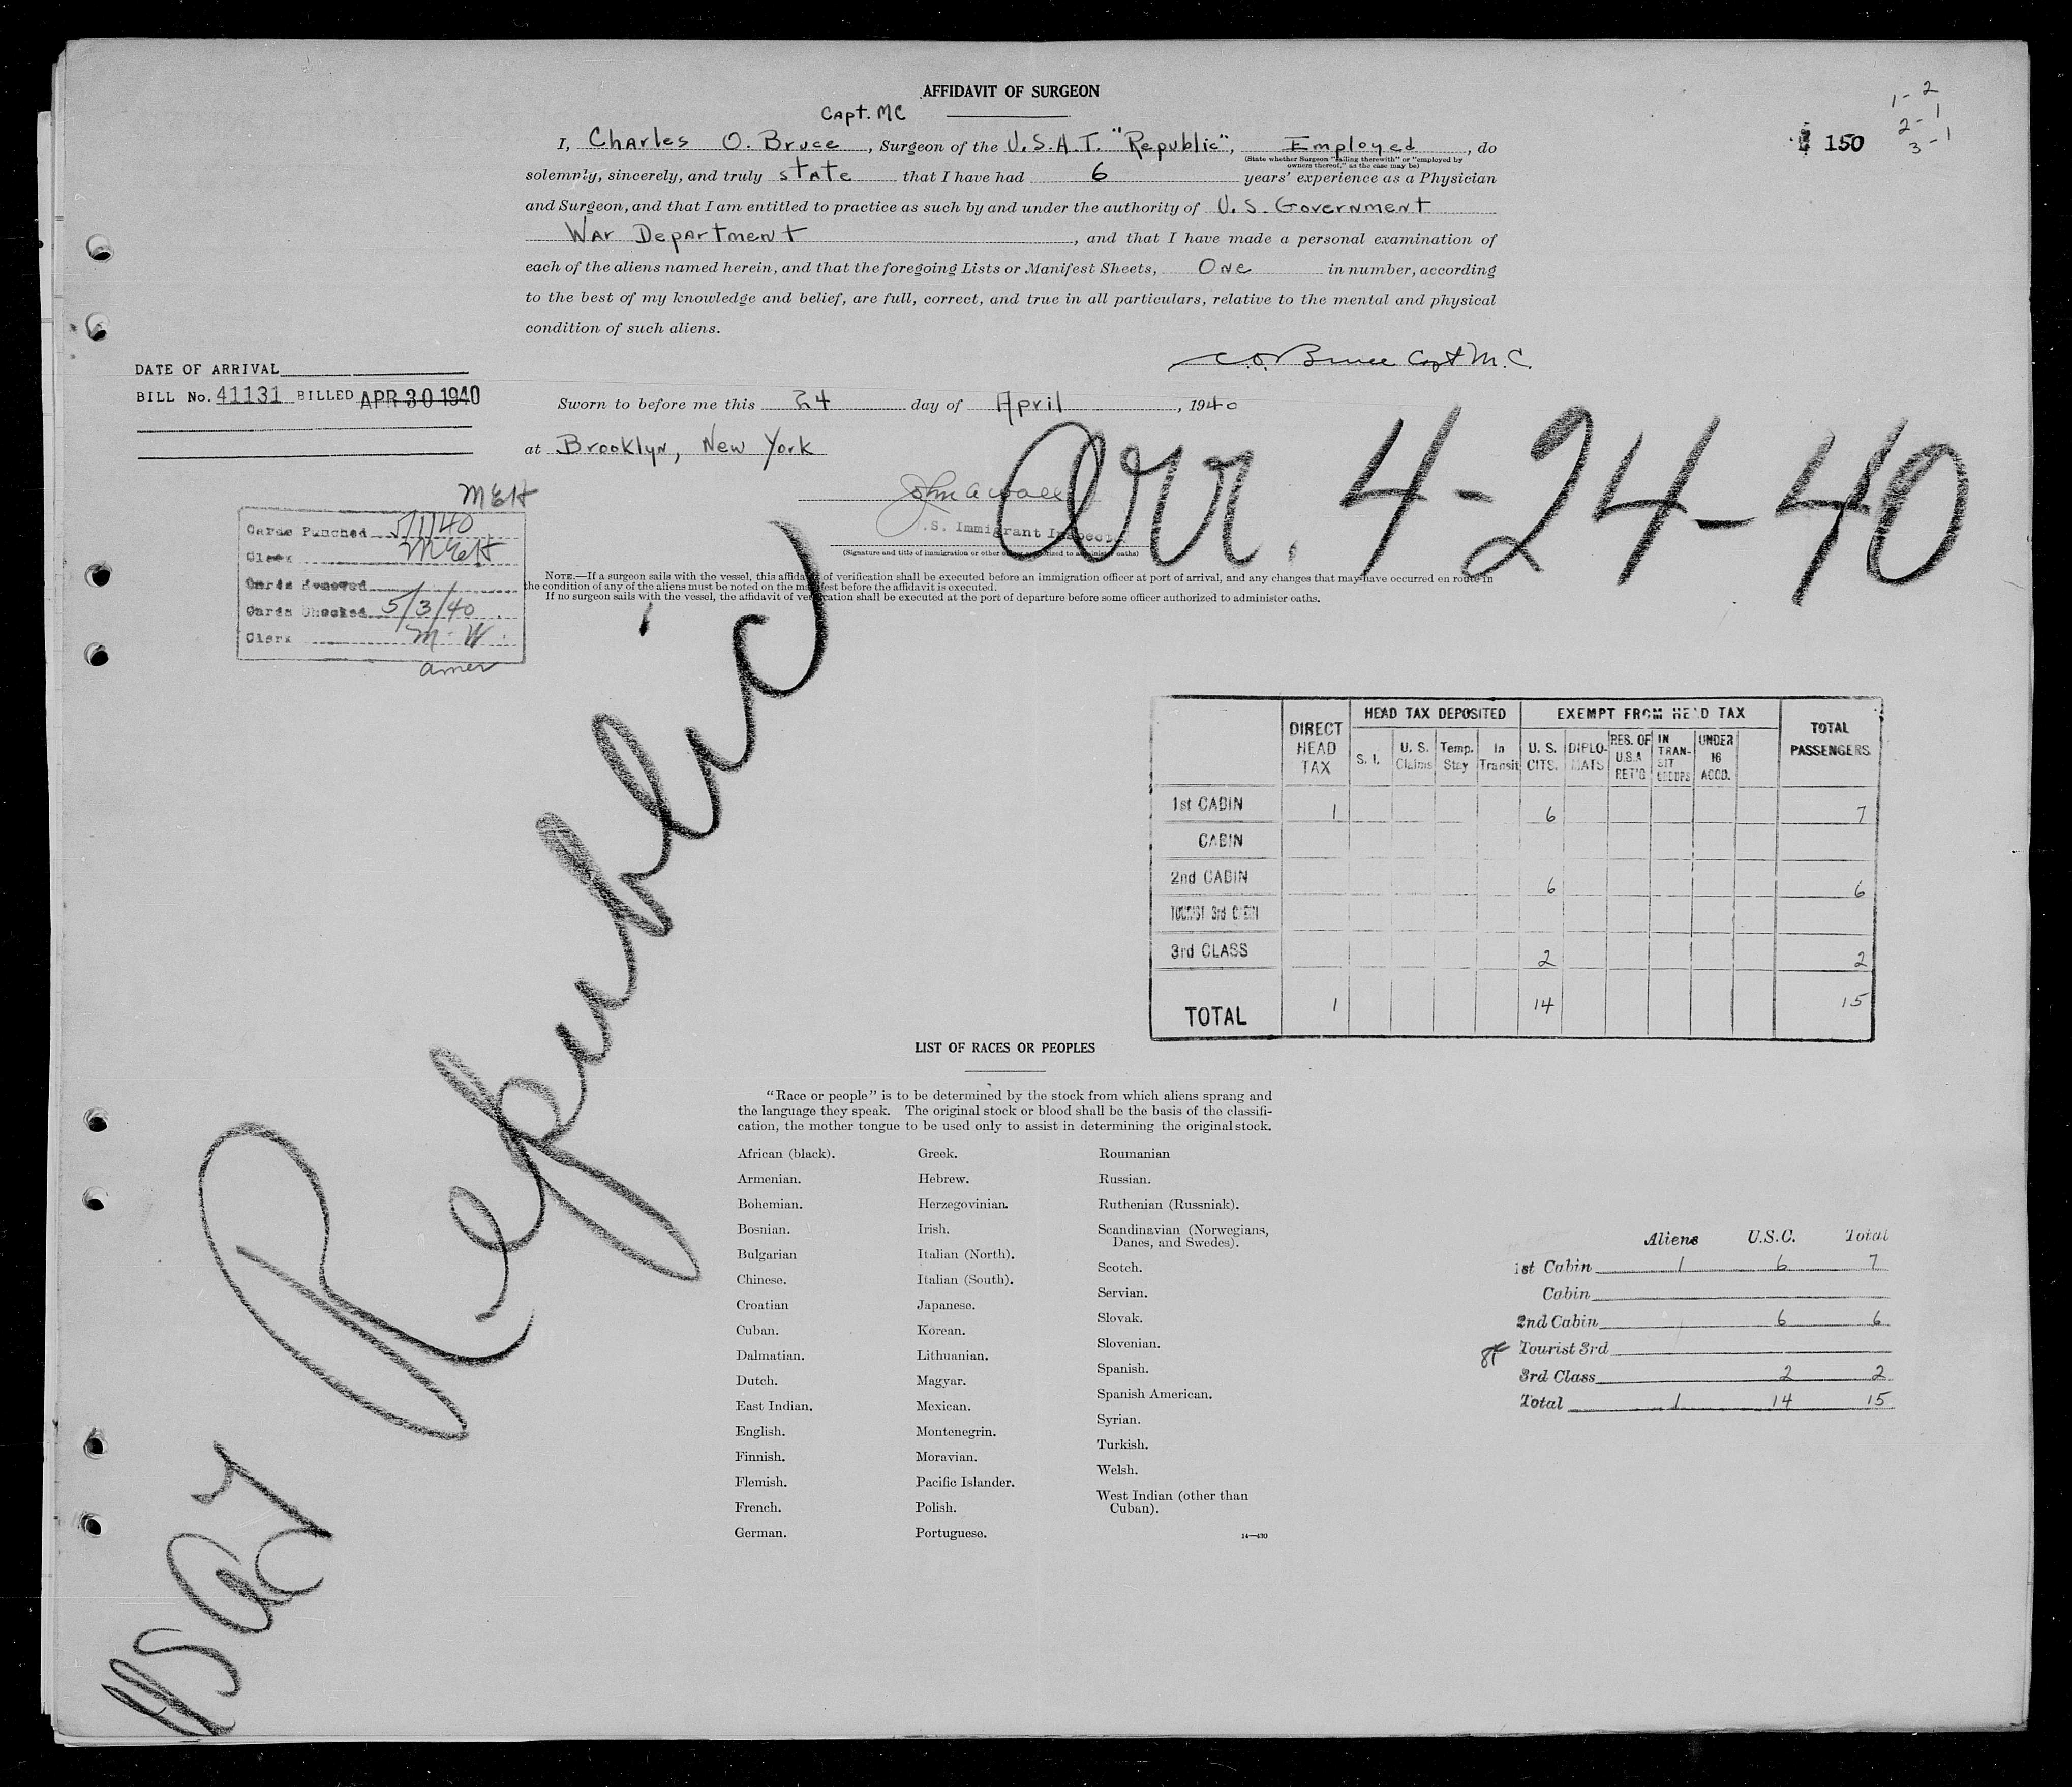 AFFIDAVIT OF SURGEON
Capt. MC
I, Charles O. Bruce, Surgeon of the U.S.A.T. "Republic", Employed, do
(State whether Surgeon "sailing therewith" or "employed by
owners thereof," as the case may be)
solemnly, sincerely, and truly state that I have had 6 years' experience as a Physician
and Surgeon, and that I am entitled to practice as such by and under the authority of U.S. Government
War Department, and that I have made a personal examination of
each of the aliens named herein, and that the foregoing Lists or Manifest Sheets, One in number, according
to the best of my knowledge and belief, are full, correct, and true in all particulars, relative to the mental and physical
condition of such aliens.
C.O. Bruce Capt M.C.
1 - 2
2 - 1
3 - 1
150
DATE OF ARRIVAL
BILL No. 41131 BILLED APR 30 1940
Sworn to before me this 24 day of April, 1940
at Brooklyn, New York
John A
.S. Immigrant Inspector
(Signature and title of immigration or other officer authorized to administer oaths)
Arr. 4-24-40
NOTE.—If a surgeon sails with the vessel, this affidavit of verification shall be executed before an immigration officer at port of arrival, and any changes that may have occurred en route in
the condition of any of the aliens must be noted on the manifest before the affidavit is executed.
If no surgeon sails with the vessel, the affidavit of verification shall be executed at the port of departure before some officer authorized to administer oaths.
MEH
Cards Punched 5/1/40
Clerk MEH
Cards
Cards Checked 5/3/40
Clerk M.W.
amer
USAT Republic
DIRECT HEAD TAX
HEAD TAX DEPOSITED
EXEMPT FROM HEAD TAX
TOTAL PASSENGERS
S. I. U. S. Claims Temp. Stay In Transit U. S. CITS. DIPLOMATS RES. OF U.S.A RET'G IN TRANSIT GROUPS UNDER 16 ACCD.
1st CABIN 1 6 7
CABIN
2nd CABIN 6 6
TOURIST 3rd CABIN
3rd CLASS 2 2
TOTAL 1 14 15
LIST OF RACES OR PEOPLES
"Race or people" is to be determined by the stock from which aliens sprang and
the language they speak. The original stock or blood shall be the basis of the classifi-
cation, the mother tongue to be used only to assist in determining the original stock.
African (black).
Armenian.
Bohemian.
Bosnian.
Bulgarian
Chinese.
Croatian
Cuban.
Dalmatian.
Dutch.
East Indian.
English.
Finnish.
Flemish.
French.
German.
Greek.
Hebrew.
Herzegovinian.
Irish.
Italian (North).
Italian (South).
Japanese.
Korean.
Lithuanian.
Magyar.
Mexican.
Montenegrin.
Moravian.
Pacific Islander.
Polish.
Portuguese.
Roumanian
Russian.
Ruthenian (Russniak).
Scandinavian (Norwegians,
Danes, and Swedes).
Scotch.
Servian.
Slovak.
Slovenian.
Spanish.
Spanish American.
Syrian.
Turkish.
Welsh.
West Indian (other than
Cuban).
14—430
Aliens U.S.C. Total
1st Cabin 1 6 7
Cabin
2nd Cabin 6 6
Tourist 3rd
3rd Class 2 2
Total 1 14 15